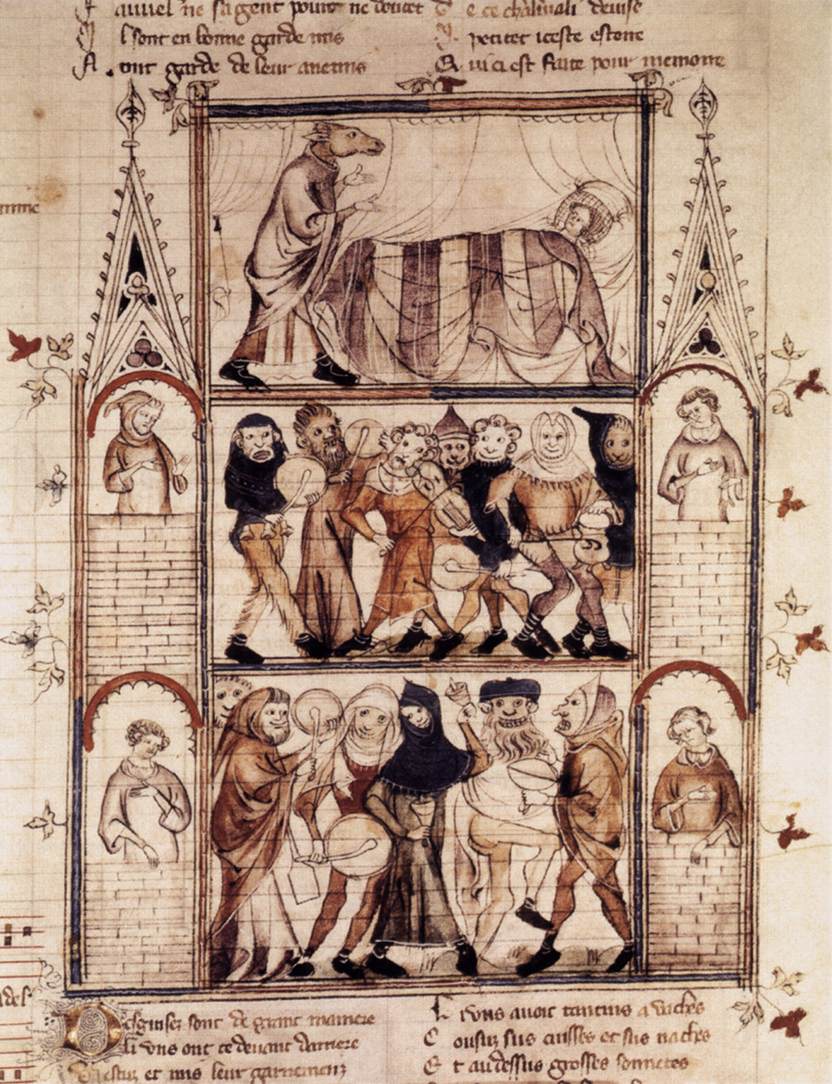 auuel ne sa gent ne doutet
l sont en bonne garde mis
ont garde de leur anemis
e ce chaliuali deuise
petitet iceste estoire
Q ui ci est faite pour memoire
D esguisez sont de grant maniere
li vns ont ce deuant darriere
vestuz et mis leur garnemenz
L i vns auoit tantins a vaches
C ousuz sus cuisses et sus naches
E t au dessus grosses sonnetes